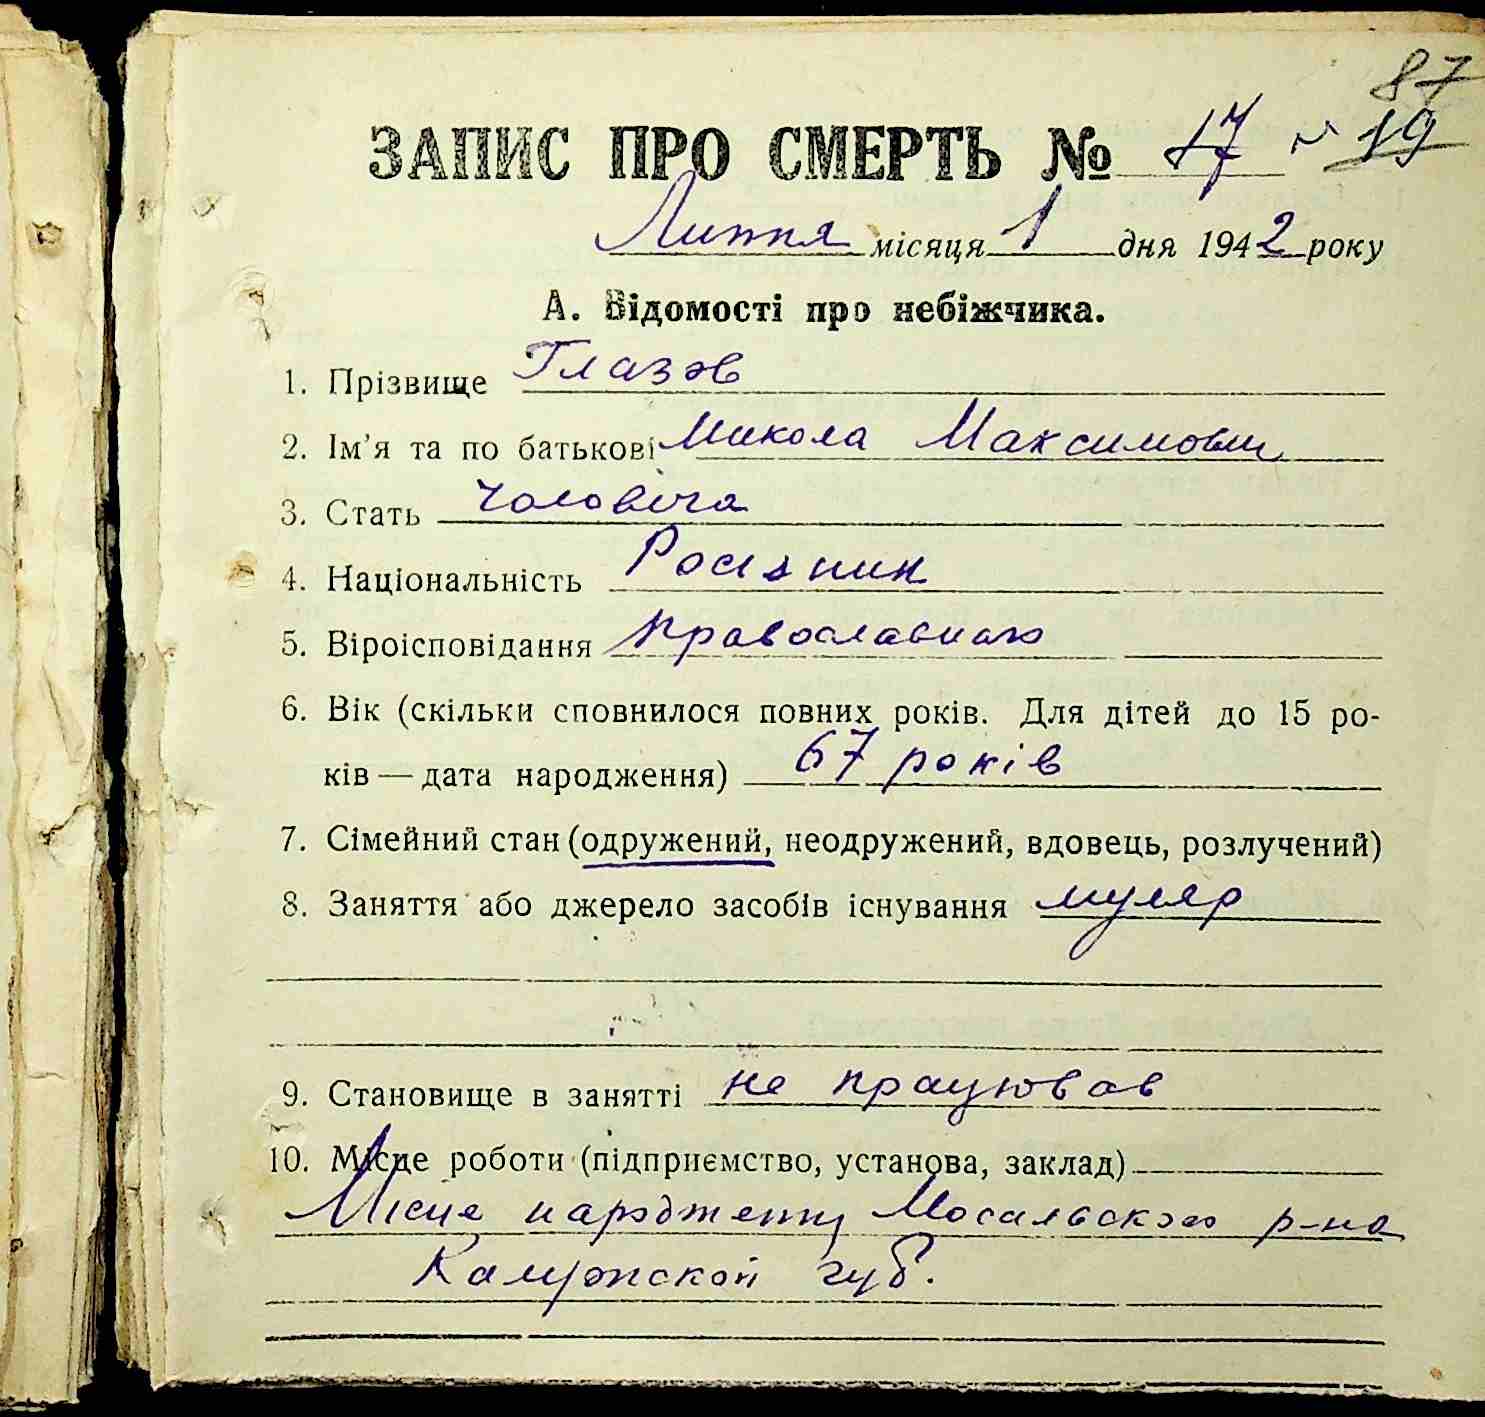 87
ЗАПИС ПРО СМЕРТЬ № 17 19
Липня місяця 1 дня 1942 року
А. Відомості про небіжчика.
1. Прізвище Глазов
2. Ім'я та по батькові Микола Максимович
3. Стать чоловіча
4. Національність Росіянин
5. Віроісповідання православною
6. Вік (скільки сповнилося повних років. Для дітей до 15 ро-
ків — дата народження) 67 років
7. Сімейний стан (одружений, неодружений, вдовець, розлучений)
8. Заняття або джерело засобів існування муляр
9. Становище в занятті не працював
10. Місце роботи (підприємство, установа, заклад)
Місце народження Мосальского р-на
Калужской губ.